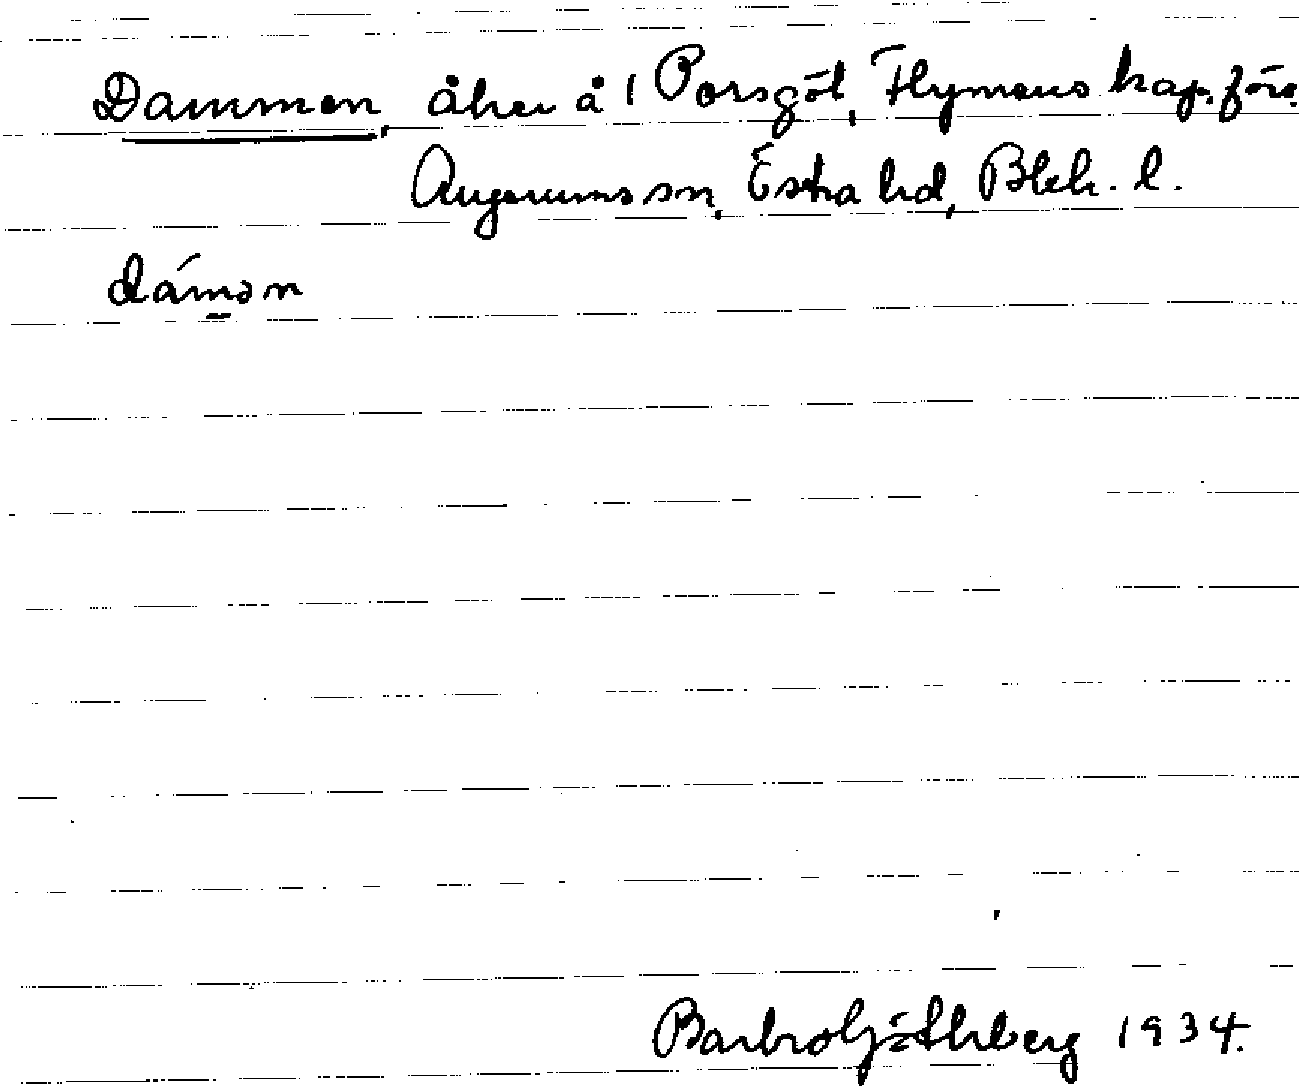 Dammen, åker å 1 Porsgöl, Flymens kap. förs.
Augerums sn, Östra hd, Blek. l.
dámən
Barbro Göthberg 1934.